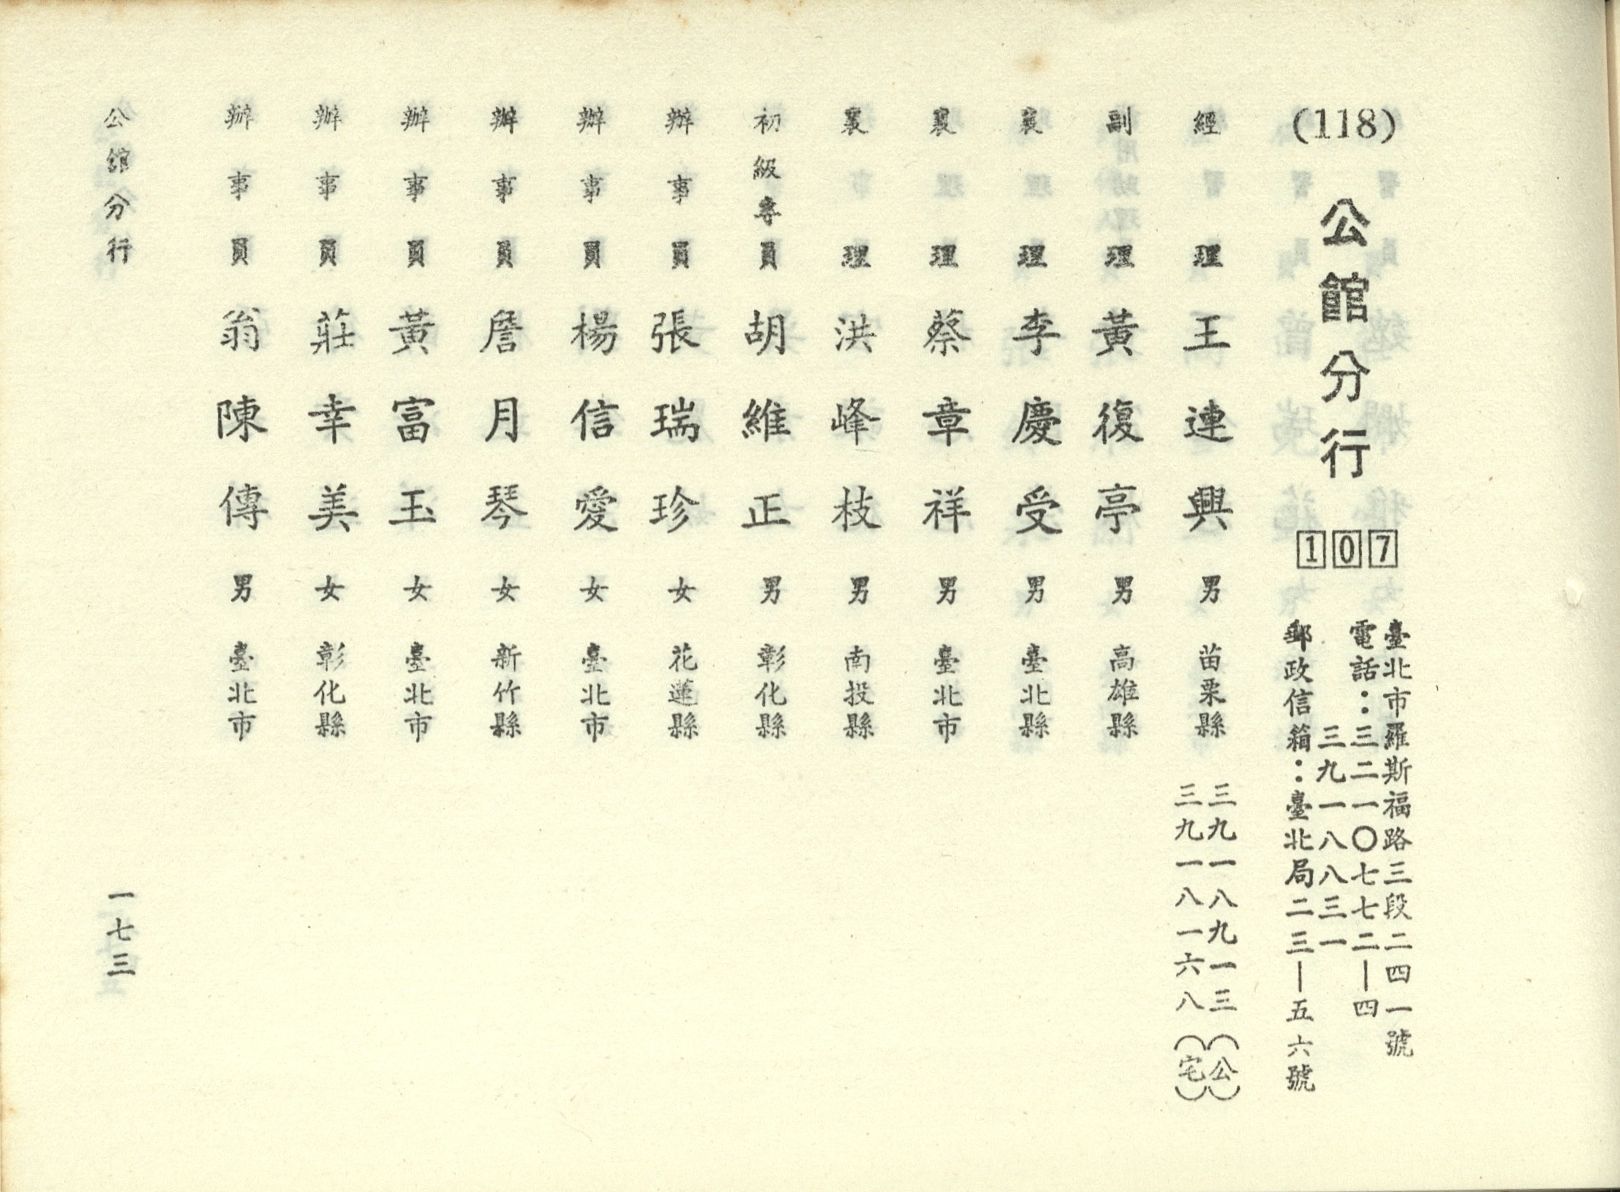 (118)
公館分行
107
臺北市羅斯福路三段二四一號
電話：三二一〇七七二—四
三九一八八三一
郵政信箱：臺北局二三—五六號
經理 王連興 男 苗栗縣 三九一八九一三（公）
三九一八一六八（宅）
副理 黃復亭 男 高雄縣
襄理 李慶受 男 臺北縣
襄理 蔡章祥 男 臺北市
襄理 洪峰枝 男 南投縣
初級專員 胡維正 男 彰化縣
辦事員 張瑞珍 女 花蓮縣
辦事員 楊信愛 女 臺北市
辦事員 詹月琴 女 新竹縣
辦事員 黃富玉 女 臺北市
辦事員 莊幸美 女 彰化縣
辦事員 翁陳傳 男 臺北市
公館分行
一七三